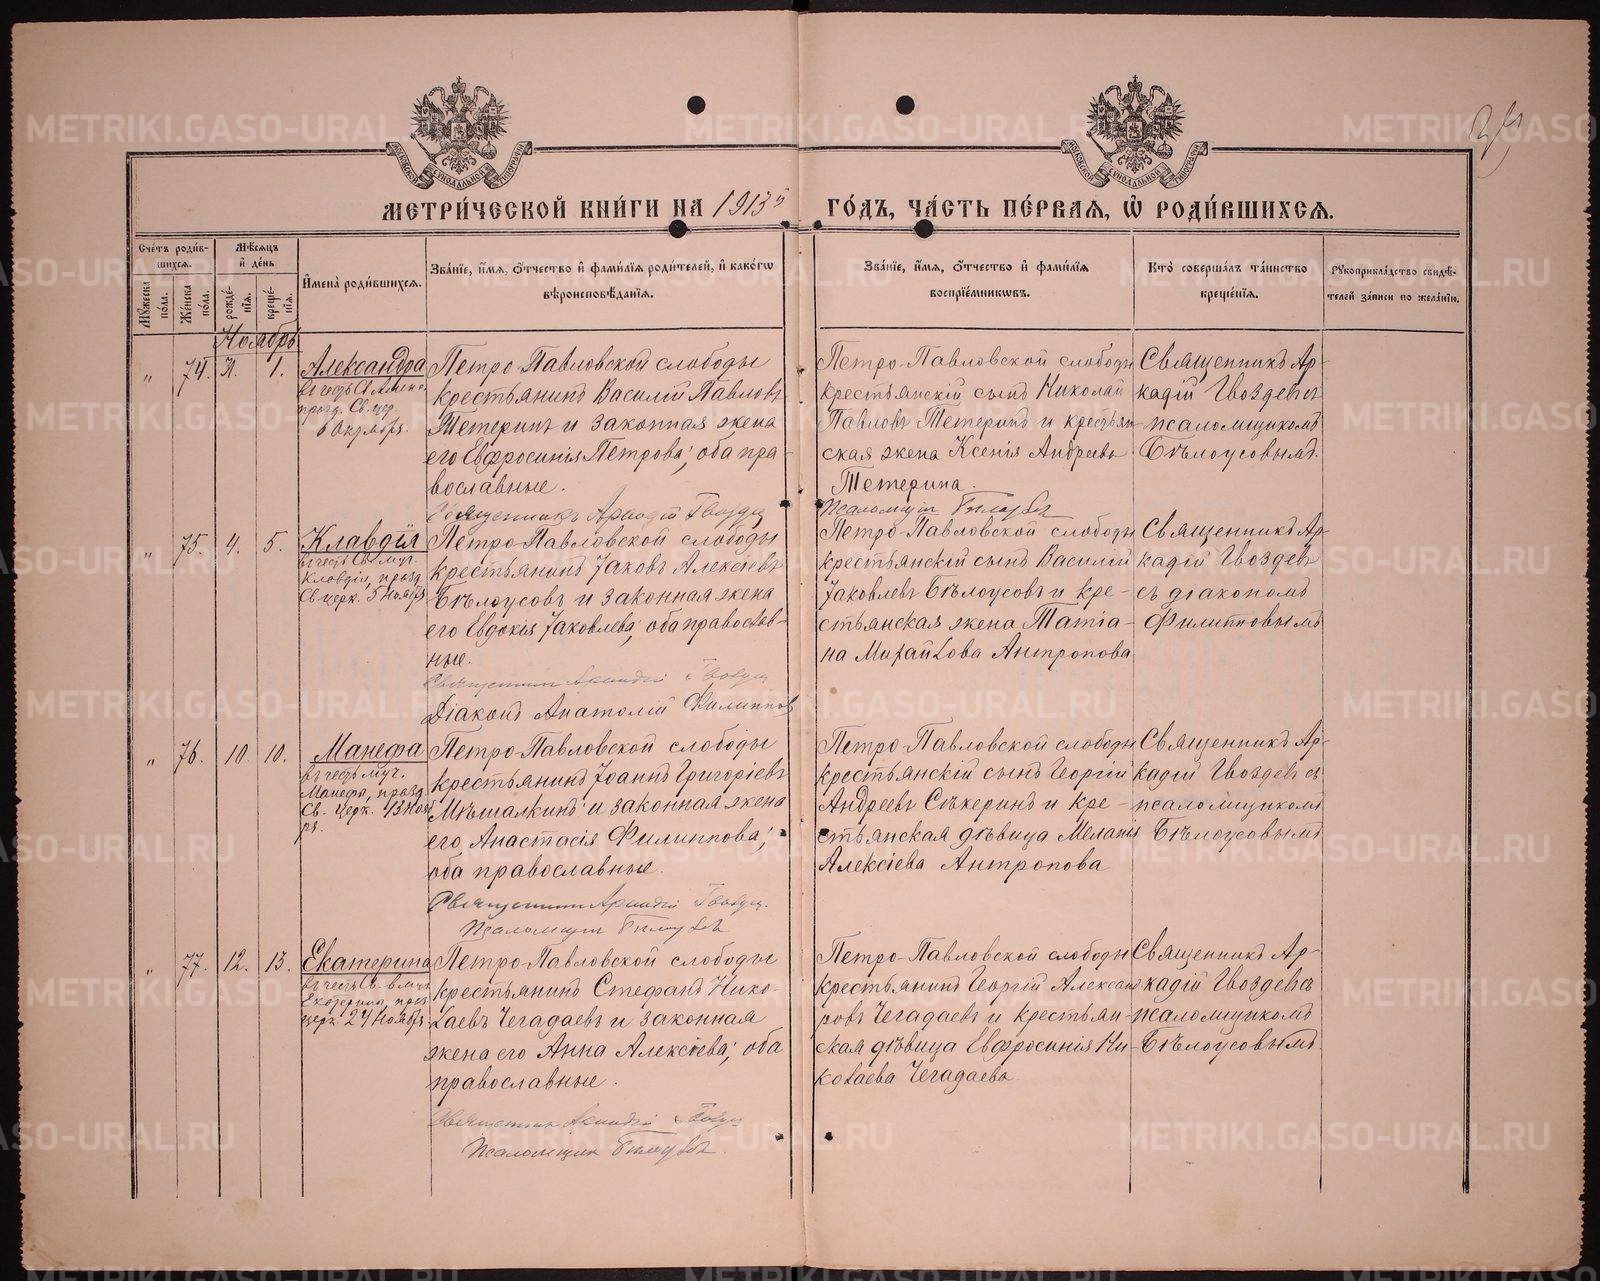 МЕТРИ́ЧЕСКОЙ КНИ́ГИ НА 1913й ГО́ДЪ, ЧА́СТЬ ПЕ́РВАЯ, Ѡ РОДИ́ВШИХСЯ.
Сче́тъ роди́в-
шихся.
Мꙋ́жеска по́ла.
Же́нска по́ла.
Мѣ́сяцъ и҆ де́нь
рожде́-
нїя.
креще́-
нїя.
И҆мена̀ роди́вшихся.
Зва́нїе, и҆́мя, ѻ҆́тчество и҆ фами́лїя роди́телей, и҆ како́гѡ
вѣроисповѣ́данїя.
Зва́нїе, и҆́мя, ѻ҆́тчество и҆ фами́лїя
воспрїе́мниковъ.
Кто̀ соверша́лъ та́инство
креще́нїя.
Рꙋкоприкла́дство свидѣ́-
телей за́писи по жела́нїю.
Ноябрь
" 74. 31. 1. Александра
въ честь Св.
празд. Св. цер.
6 Ноября.
Петро-Павловской слободы
крестьянинъ Василій Павловъ
Тетеринъ и законная жена
его Евфросинія Петрова; оба пра-
вославные.
Священникъ Аркадій Гвоздевъ
Петро-Павловской слободы
крестьянскій сынъ Николай
Павловъ Тетеринъ и крестьян
ская жена Ксенія Андреева
Тетерина.
Псаломщикъ Бѣлоусовъ
Священникъ Ар-
кадій Гвоздевъ съ
псаломщикомъ
Бѣлоусовымъ.
" 75. 4. 5. Клавдія
въ честь Св. муч.
Клавдіи, празд.
Св. церк. 5 Ноября
Петро-Павловской слободы
крестьянинъ Іаковъ Алексіевъ
Бѣлоусовъ и законная жена
его Евдокія Іаковлева; оба православ-
ные.
Священникъ Аркадій Гвоздевъ
Діаконъ Анатолій Филипповъ
Петро-Павловской слободы
крестьянскій сынъ Василій
Іаковлевъ Бѣлоусовъ и кре-
стьянская жена Татіа-
на Михайлова Антропова
Священникъ Ар-
кадій Гвоздевъ
съ діакономъ
Филипповымъ
" 76. 10. 10. Манефа
въ честь муч.
Манефы, празд.
Св. церк. 13 Нояб
ря.
Петро-Павловской слободы
крестьянинъ Іоаннъ Григоріевъ
Мѣшалкинъ и законная жена
его Анастасія Филиппова;
оба православные.
Священникъ Аркадій Гвоздевъ.
Псаломщикъ Бѣлоусовъ
Петро-Павловской слободы
крестьянскій сынъ Георгій
Андреевъ Сѣкеринъ и кре-
стьянская дѣвица Меланія
Алексіева Антропова
Священникъ Ар-
кадій Гвоздевъ съ
псаломщикомъ
Бѣлоусовымъ
" 77. 12. 13. Екатерина
въ честь Св. в. муч.
Екатерины, праз
церк. 24 Ноября
Петро-Павловской слободы
крестьянинъ Стефанъ Нико-
лаевъ Чегадаевъ и законная
жена его Анна Алексіева; оба
православные.
Священникъ Аркадій Гвоздевъ
Псаломщикъ Бѣлоусовъ.
Петро-Павловской слободы
крестьянинъ Георгій Александ
ровъ Чегадаевъ и крестьян-
ская дѣвица Евфросинія Ни-
колаева Чегадаева.
Священникъ Ар-
кадій Гвоздевъ съ
псаломщикомъ
Бѣлоусовымъ.
METRIKI.GASO-URAL.RU